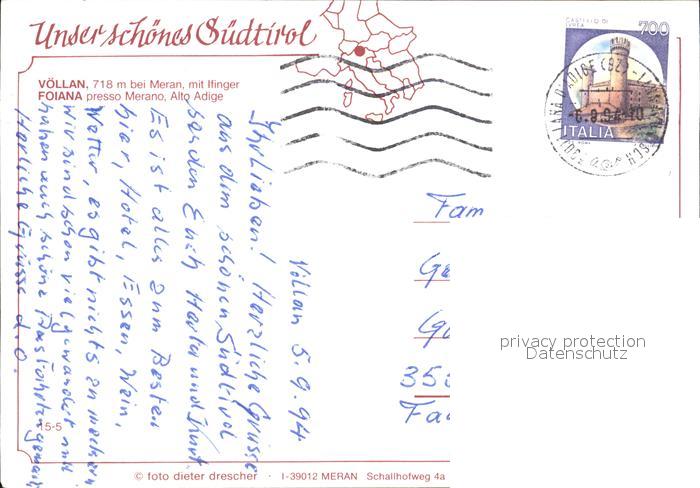 Unser schönes Südtirol
VÖLLAN, 718 m bei Meran, mit Ifinger
FOIANA presso Merano, Alto Adige
CASTELLO DI IVREA
700
ITALIA
Völlan 5.9.94
Ihr Lieben! Herzliche Grüsse
aus dem schönen Südtirol
senden Euch Herta und Kurt
Es ist alles zum Besten
hier, Hotel, Essen, Wein,
Wetter, es gibt nichts zu meckern
wir sind schon viel gewandert und
haben auch schöne gemacht
Herzliche Grüsse d.O.
Fam
Ge
35
Fa
privacy protection
Datenschutz
15-5
© foto dieter drescher · I-39012 MERAN Schallhofweg 4a